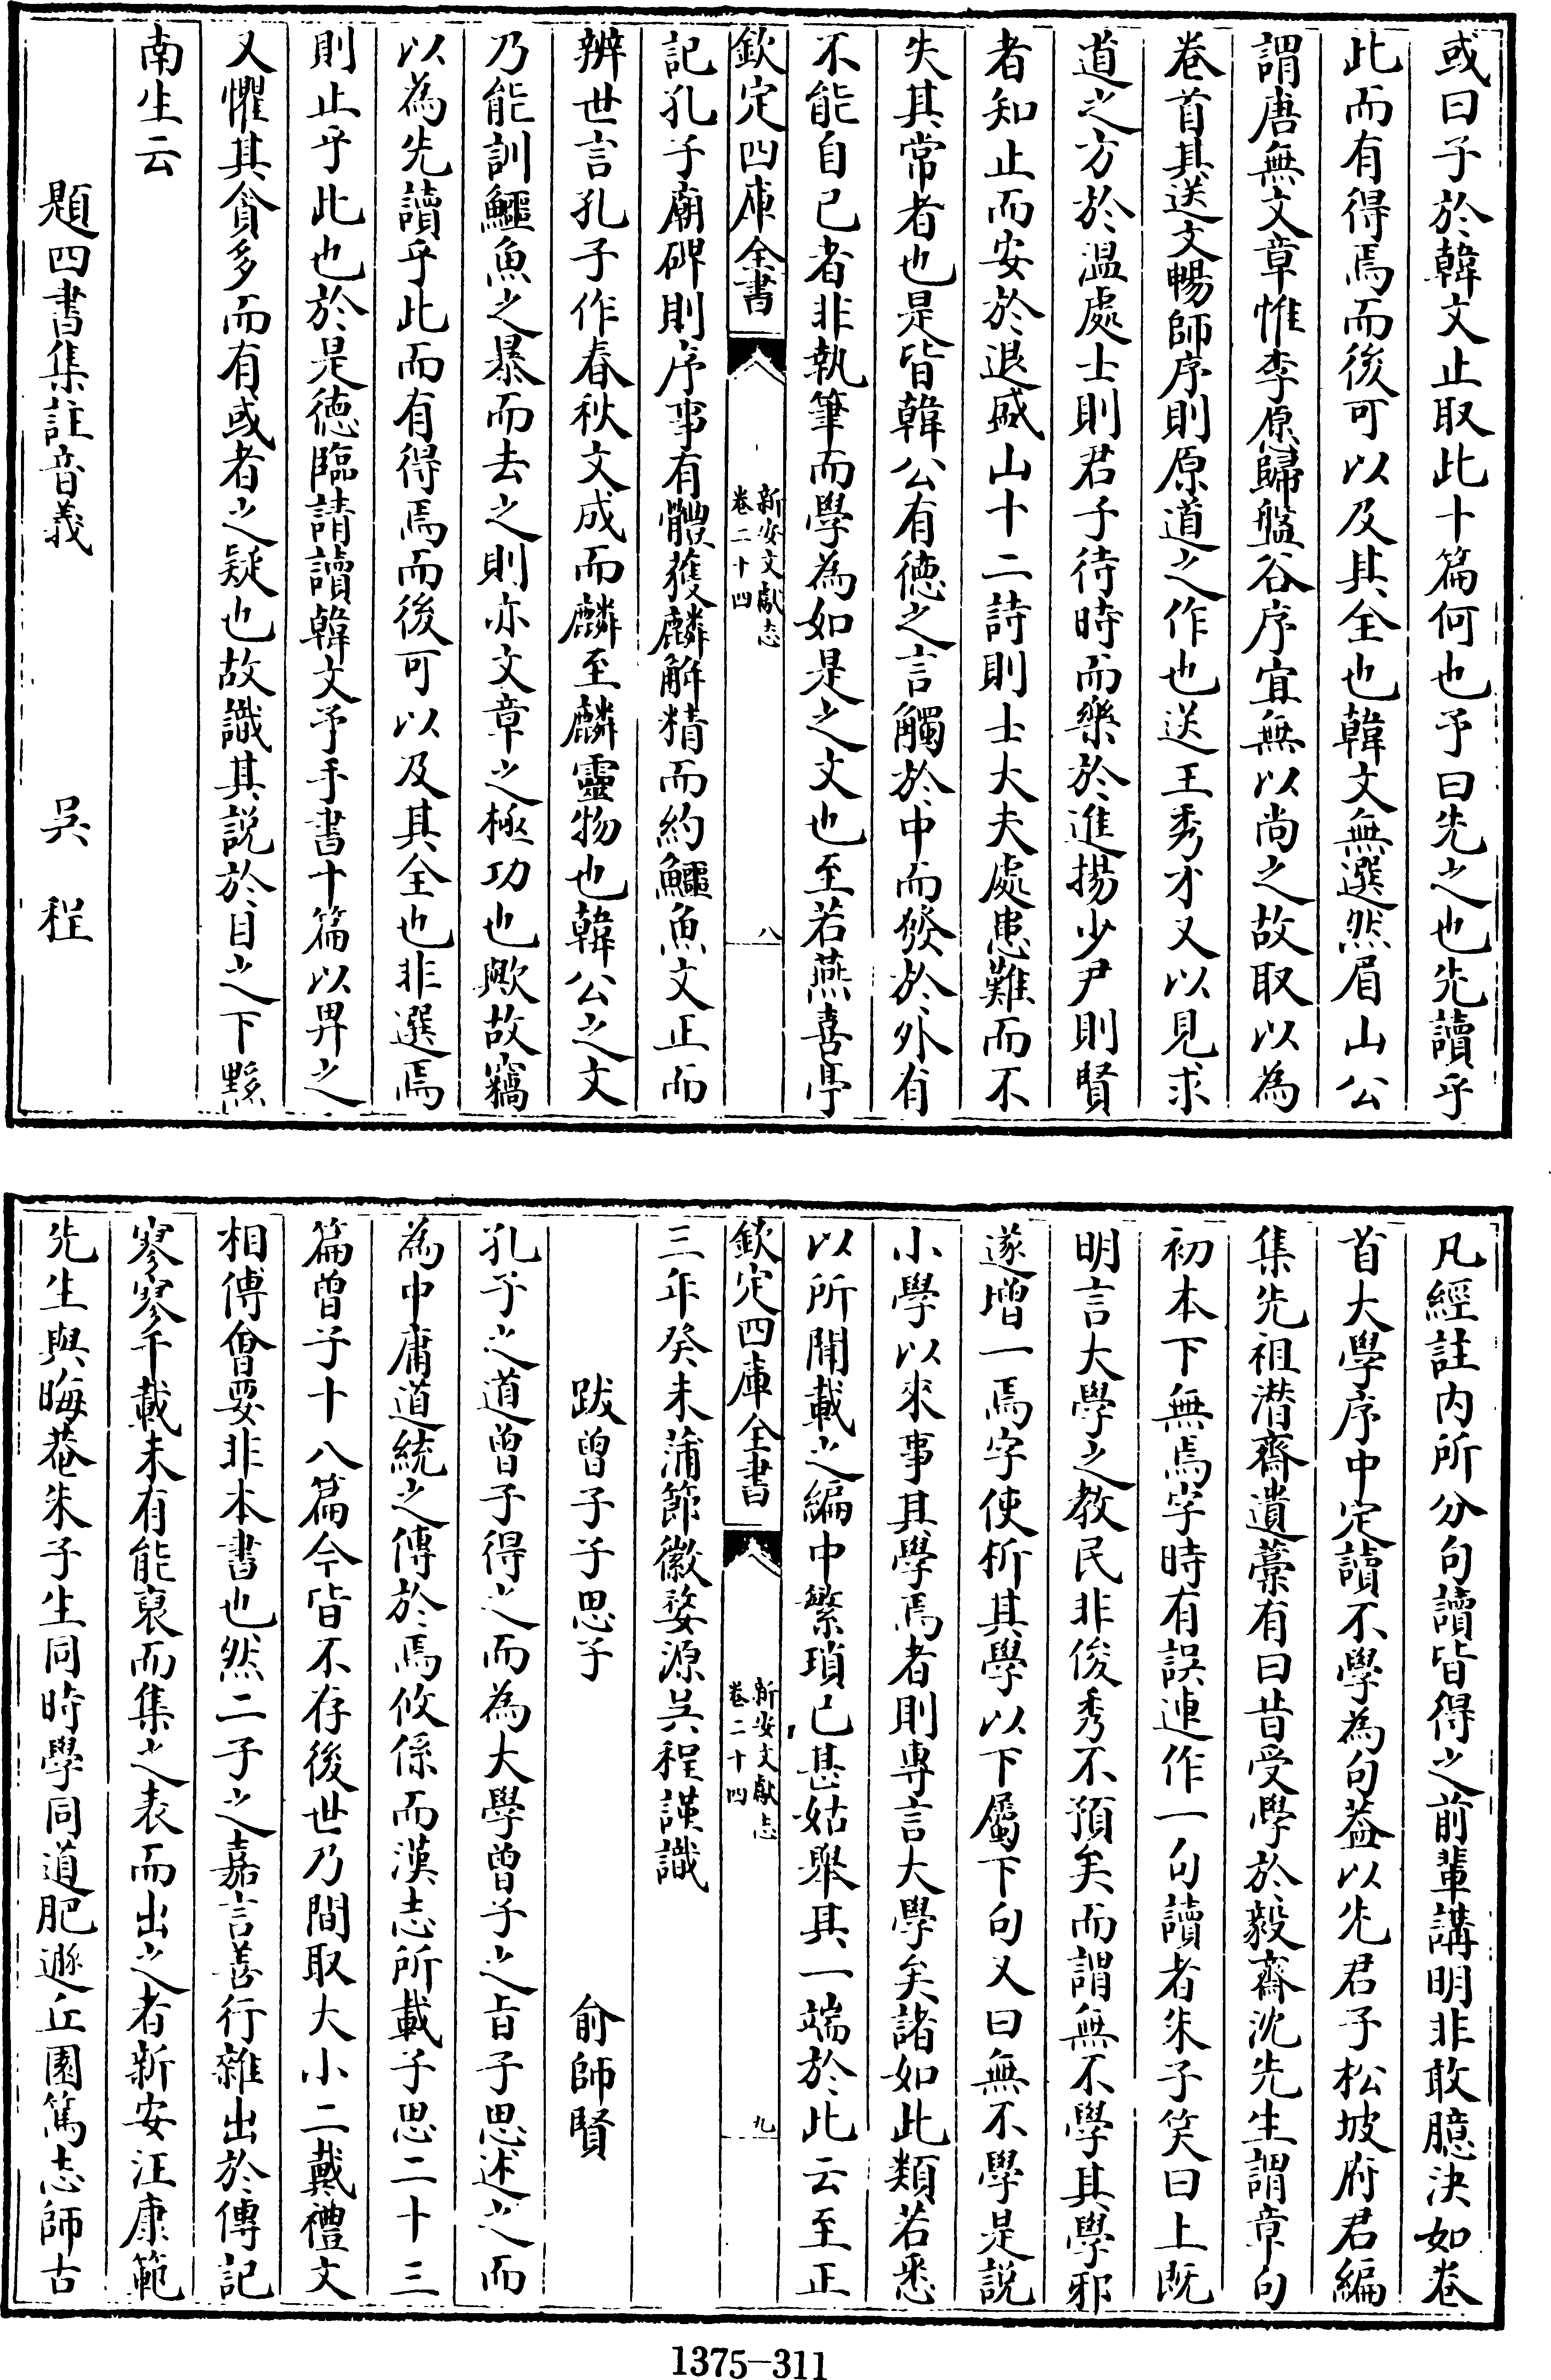 或曰子於韓文止取此十篇何也予曰先之也先讀乎
此而有得焉而後可以及其全也韓文無選然眉山公
謂唐無文章惟李愿歸盤谷序宜無以尚之故取以為
卷首其送文暢師序則原道之作也送王秀才又以見求
道之方於温處士則君子待時而樂於進揚少尹則賢
者知止而安於退盛山十二詩則士大夫處患難而不
失其常者也是皆韓公有德之言觸於中而發於外有
不能自已者非執筆而學為如是之文也至若燕喜亭
欽定四庫全書
新安文獻志
卷二十四
八
記孔子廟碑則序事有體獲麟解精而約鱷魚文正而
辨世言孔子作春秋文成而麟至麟靈物也韓公之文
乃能訓鱷魚之暴而去之則亦文章之極功也歟故竊
以為先讀乎此而有得焉而後可以及其全也非選焉
則止乎此也於是德臨請讀韓文予手書十篇以畀之
又懼其貪多而有或者之疑也故識其說於目之下黟
南生云
題四書集註音義
吳程
凡經註内所分句讀皆得之前輩講明非敢臆決如卷
首大學序中定讀不學為句葢以先君子松坡府君編
集先祖潛齋遺藁有曰昔受學於毅齋沈先生謂章句
初本下無焉字時有誤連作一句讀者朱子笑曰上既
明言大學之教民非俊秀不預矣而謂無不學其學邪
遂增一焉字使析其學以下屬下句又曰無不學是說
小學以來事其學焉者則專言大學矣諸如此類若悉
以所聞載之編中繁瑣已甚姑舉其一端於此云至正
欽定四庫全書
新安文獻志
卷二十四
九
三年癸未蒲節徽婺源吳程謹識
跋曾子子思子
俞師賢
孔子之道曾子得之而為大學曾子之旨子思述之而
為中庸道統之傳於焉攸係而漢志所載子思二十三
篇曾子十八篇今皆不存後世乃間取大小二戴禮文
相傅會要非本書也然二子之嘉言善行雜出於傳記
寥寥千載未有能裒而集之表而出之者新安汪康範
先生與晦菴朱子生同時學同道肥遯丘園篤志師古
1375-311